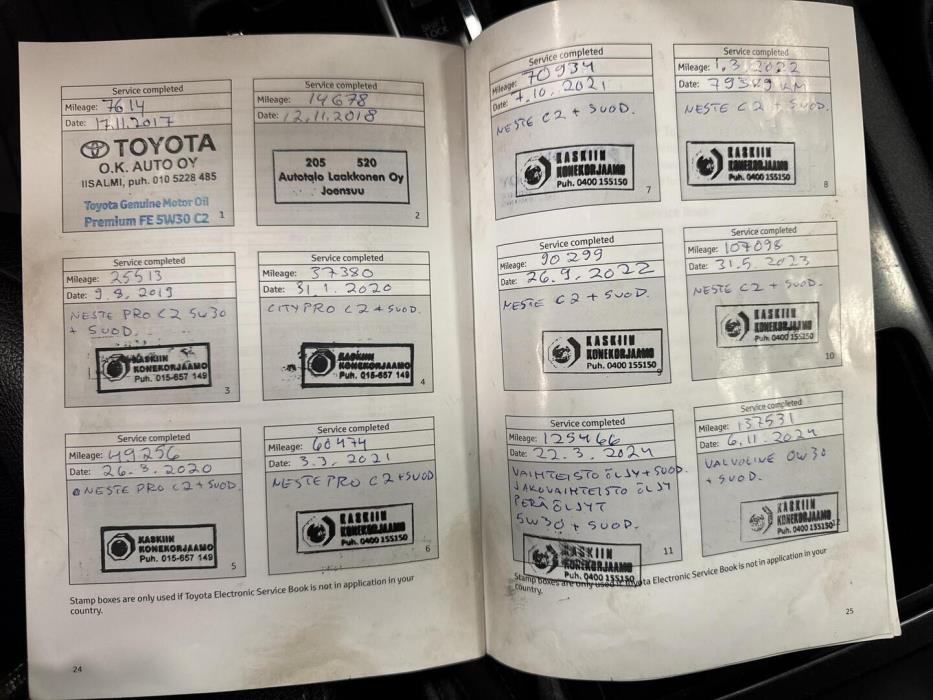 SHIFT
LOCK
Service completed
Mileage: 7614
Date: 17.11.2017
TOYOTA
O.K. AUTO OY
IISALMI, puh. 010 5228 485
Toyota Genuine Motor Oil
Premium FE 5W30 C2
1
Service completed
Mileage: 14678
Date: 12.11.2018
205 520
Autotalo Laakkonen Oy
Joensuu
2
Service completed
Mileage: 25513
Date: 9.8.2019
NESTE PRO C2 5W30
+ SUOD.
KASKIIN
KONEKORJAAMO
Puh. 015-657 149
3
Service completed
Mileage: 37380
Date: 31.1.2020
CITYPRO C2 + SUOD.
KASKIIN
KONEKORJAAMO
Puh. 015-657 149
4
Service completed
Mileage: 49256
Date: 26.3.2020
NESTE PRO C2 + SUOD.
KASKIIN
KONEKORJAAMO
Puh. 015-657 149
5
Service completed
Mileage: 60474
Date: 3.3.2021
NESTE PRO C2 + SUOD
KASKIIN
KONEKORJAAMO
Puh. 0400 155150
6
Stamp boxes are only used if Toyota Electronic Service Book is not in application in your
country.
24
Service completed
Mileage: 70934
Date: 7.10.2021
NESTE C2 + SUOD.
KASKIIN
KONEKORJAAMO
Puh. 0400 155150
7
Service completed
Mileage: 1.3.2022
Date: 79389 KM
NESTE C2 + SUOD.
KASKIIN
KONEKORJAAMO
Puh. 0400 155150
8
Service completed
Mileage: 90299
Date: 26.9.2022
NESTE C2 + SUOD.
KASKIIN
KONEKORJAAMO
Puh. 0400 155150
9
Service completed
Mileage: 107098
Date: 31.5.2023
NESTE C2 + SUOD.
KASKIIN
KONEKORJAAMO
Puh. 0400 155150
10
Service completed
Mileage: 125466
Date: 22.3.2024
VAIHTEISTO ÖLJY + SUOD.
JAKOVAIHTEISTO ÖLJY
PERÄ ÖLJYT
5W30 + SUOD.
KASKIIN
KONEKORJAAMO
Puh. 0400 155150
11
Service completed
Mileage: 137531
Date: 6.11.2024
VALVOLINE 0W30
+ SUOD.
KASKIIN
KONEKORJAAMO
Puh. 0400 155150
12
Stamp boxes are only used if Toyota Electronic Service Book is not in application in your
country.
25